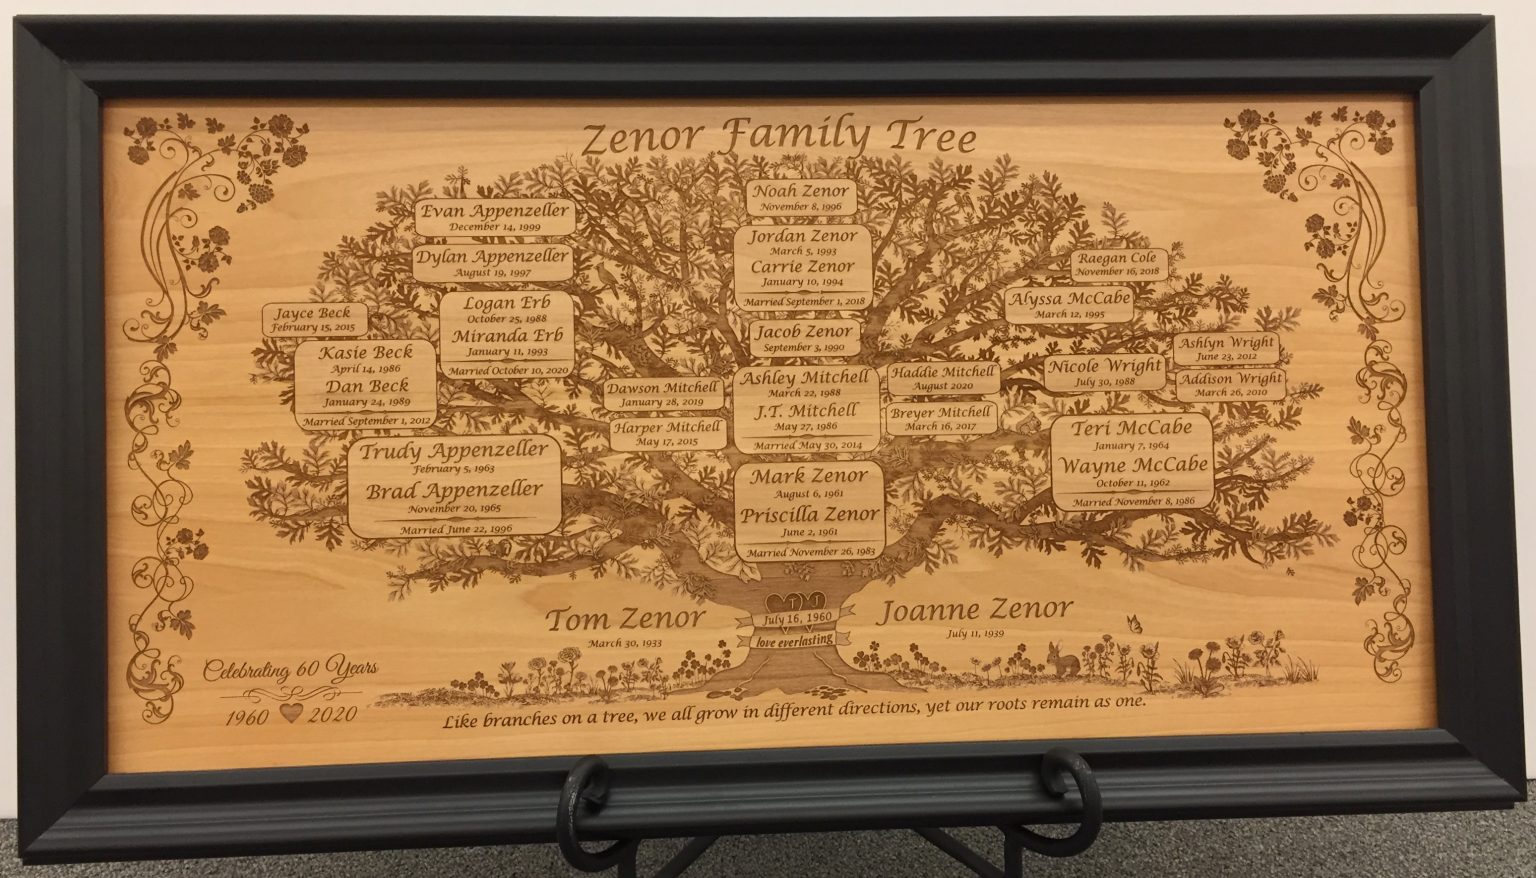 Zenor Family Tree
Noah Zenor
November 8, 1996
Evan Appenzeller
December 14, 1999
Jordan Zenor
March 5, 1993
Carrie Zenor
January 10, 1994
Married September 1, 2018
Dylan Appenzeller
August 19, 1997
Raegan Cole
November 16, 2018
Logan Erb
October 25, 1988
Miranda Erb
January 11, 1993
Married October 10, 2020
Alyssa McCabe
March 12, 1995
Jayce Beck
February 15, 2015
Jacob Zenor
September 3, 1990
Kasie Beck
April 14, 1986
Dan Beck
January 24, 1989
Married September 1, 2012
Ashlyn Wright
June 23, 2012
Nicole Wright
July 30, 1988
Addison Wright
March 26, 2010
Dawson Mitchell
January 28, 2019
Ashley Mitchell
March 22, 1988
J.T. Mitchell
May 27, 1986
Married May 30, 2014
Haddie Mitchell
August 2020
Harper Mitchell
May 17, 2015
Breyer Mitchell
March 16, 2017
Trudy Appenzeller
February 5, 1963
Brad Appenzeller
November 20, 1965
Married June 22, 1996
Mark Zenor
August 6, 1961
Priscilla Zenor
June 2, 1961
Married November 26, 1983
Teri McCabe
January 7, 1964
Wayne McCabe
October 11, 1962
Married November 8, 1986
Tom Zenor
March 30, 1933
T J
July 16, 1960
love everlasting
Joanne Zenor
July 11, 1939
Celebrating 60 Years
1960 2020
Like branches on a tree, we all grow in different directions, yet our roots remain as one.